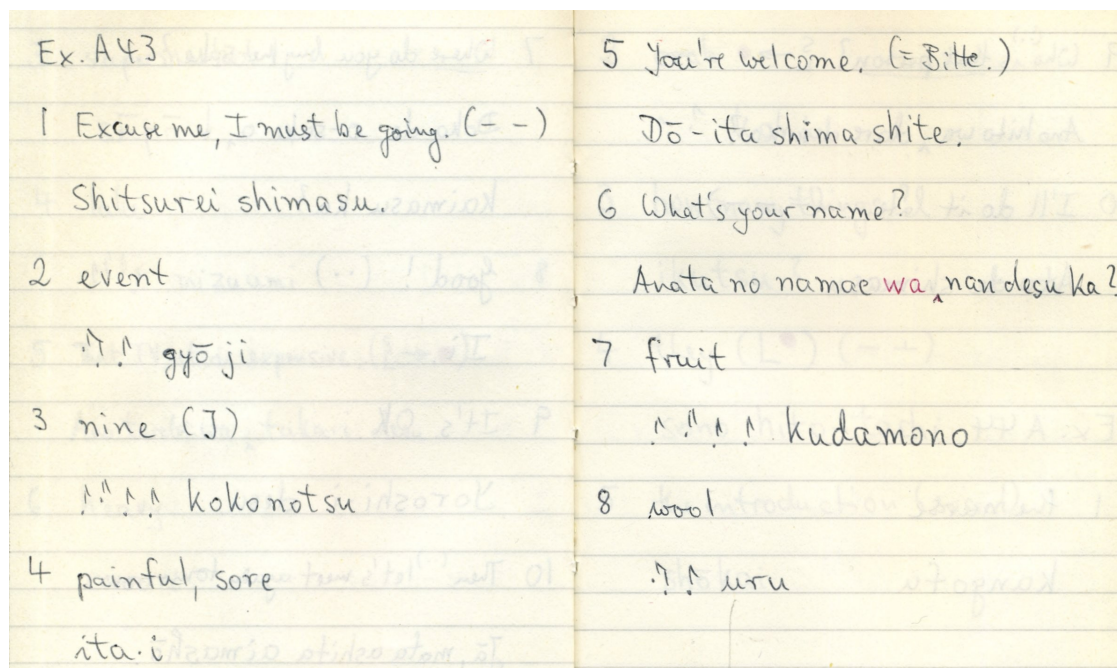 Ex. A43
1 Excuse me, I must be going. (= -)
Shitsurei shimasu.
2 event
gyōji
3 nine (J)
kokonotsu
4 painful, sore
ita·i
5 You're welcome. (= Bitte.)
Dō-ita shimashite.
6 What's your name?
Anata no namae wa, nan desu ka?
7 fruit
kudamono
8 wool
uru